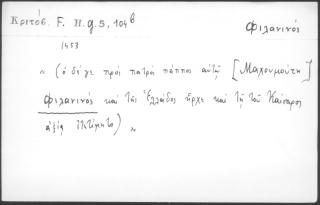 Κριτόβ. F. H. g. 5, 104ᵇ
Φιλανινός
1453
« (ὁ δέ γε πρὸς πατρὸς πάππος αὐτῷ [Μαχουμούτῃ]
Φιλανινός καὶ τῆς Ἑλλάδος ἦρχε καὶ τῇ τοῦ Καίσαρος
ἀξίᾳ ἐτετίμητο) »